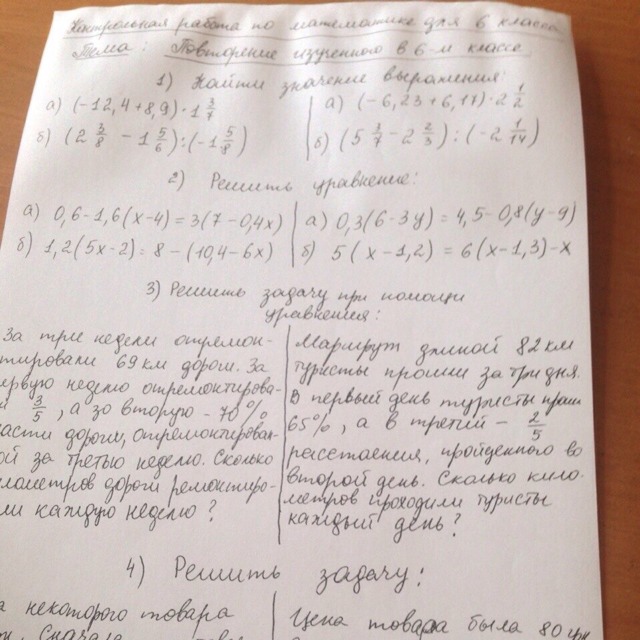 Контрольная работа по математике для 6 класса
Тема: Повторение изученного в 6-м классе
1) Найти значение выражения:
а) (-12,4+8,9)·1 3/7
б) (2 3/8 - 1 5/6):(-1 5/8)
а) (-6,23+6,17)·2 1/2
б) (5 3/7 - 2 2/3):(-2 1/14)
2) Решить уравнение:
а) 0,6-1,6(x-4)=3(7-0,4x)
б) 1,2(5x-2)=8-(10,4-6x)
а) 0,3(6-3y)=4,5-0,8(y-9)
б) 5(x-1,2)=6(x-1,3)-x
3) Решить задачу при помощи
уравнения:
За три недели отремон-
тировали 69 км дорог. За
ервую неделю отремонтирова-
и 3/5, а за вторую - 70%
асти дороги, отремонтирован-
ой за третью неделю. Сколько
лометров дороги ремонтиро-
ли каждую неделю?
Маршрут длиной 82 км
туристы прошли за три дня.
В первый день туристы прошли
65%, а в третий - 2/5
расстояния, пройденного во
второй день. Сколько кило-
метров проходили туристы
каждый день?
4) Решить задачу:
а некоторого товара
Сначала
Цена товара была 80 грн